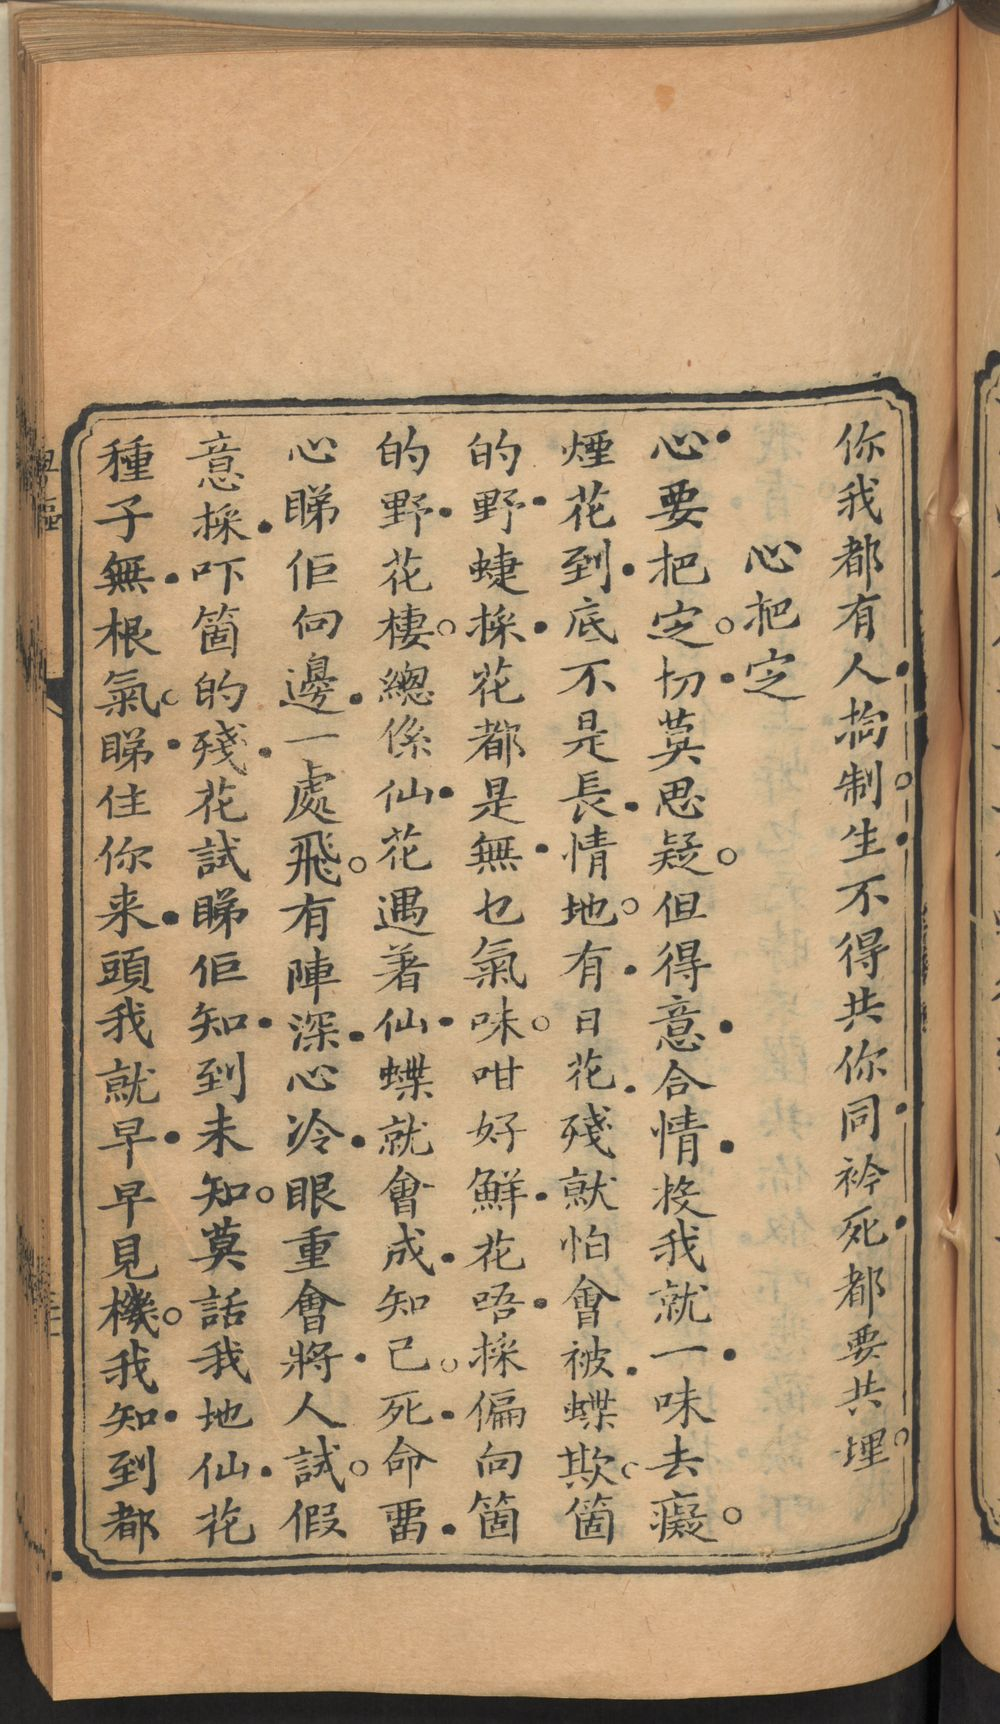 你我都有人拘制生不得共你同衿死都要共埋
心把定
心要把定切莫思疑但得意合情投我就一味去癡
煙花到底不是長情地有日花殘就怕會被蝶欺箇
的野蜨採花都是無乜氣味咁好鮮花唔採偏向箇
的野花棲總係仙花遇著仙蝶就會成知己死命畱
心睇佢向邊一處飛有陣深心冷眼重會將人試假
意採吓箇的殘花試睇佢知到未知莫話我地仙花
種子無根氣睇住你来頭我就早早見機我知到都